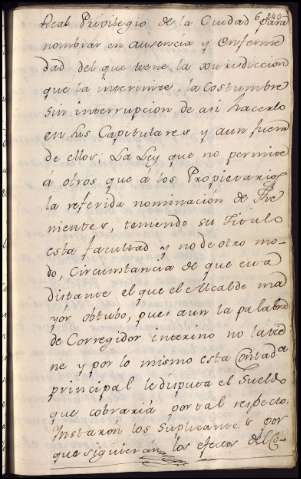 Real Privilegio de la Ciudad para
nombrar en ausencia y enferme
dad del que tiene la xurisdiccion
que la interinvre, la costumbre
sin interrupcion de asi hacerlo
en sus Capitulares y aun fuera
de ellos, La Ley que no permite
á otros que á los Propietarios
la referida nominacion de The
nientes, teniendo su Titulo
esta facultad y no de otro mo-
do, Circunstancia de que está
distante el que el Alcalde ma
yor obtubo, pues aun la palabra
de Corregidor interino no la tie
ne y por lo mismo esta Contad.ª
principal le disputa el Sueldo
que cobraria por tal respecto.
Instaron los Suplicantes por
que siguieran los efectos del Co-